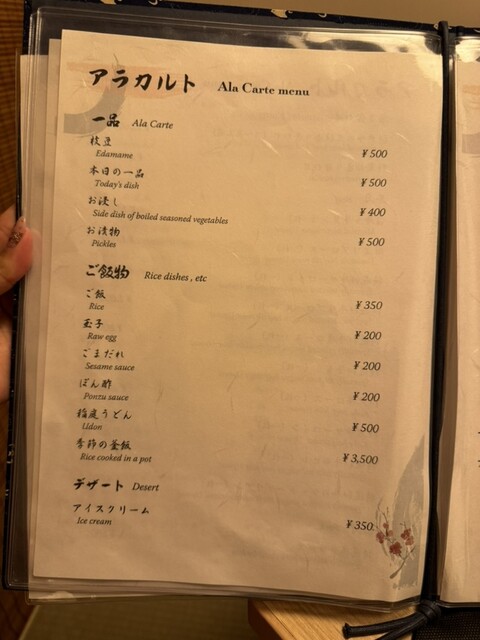 アラカルト Ala Carte menu
一品 Ala Carte
枝豆
Edamame ¥500
本日の一品
Today's dish ¥500
お浸し
Side dish of boiled seasoned vegetables ¥400
お漬物
Pickles ¥500
ご飯物 Rice dishes , etc
ご飯
Rice ¥350
玉子
Raw egg ¥200
ごまだれ
Sesame sauce ¥200
ぽん酢
Ponzu sauce ¥200
稲庭うどん
Udon ¥500
季節の釜飯
Rice cooked in a pot ¥3,500
デザート Desert
アイスクリーム
Ice cream ¥350